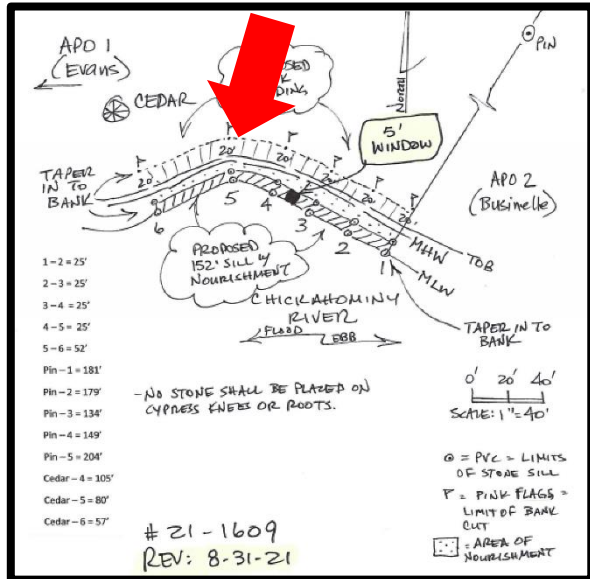 APO 1
(Evans)
CEDAR
PIN
NORTH
5'
WINDOW
APO 2
(Businelle)
TAPER
IN TO
BANK
20'
20'
20'
20'
20'
6
5
4
3
2
1
MHW
TOB
MLW
PROPOSED
152' SILL W/
NOURISHMENT
CHICKAHOMINY
RIVER
FLOOD
EBB
TAPER IN TO
BANK
1 – 2 = 25'
2 – 3 = 25'
3 – 4 = 25'
4 – 5 = 25'
5 – 6 = 52'
Pin – 1 = 181'
Pin – 2 = 179'
Pin – 3 = 134'
Pin – 4 = 149'
Pin – 5 = 204'
Cedar – 4 = 105'
Cedar – 5 = 80'
Cedar – 6 = 57'
- NO STONE SHALL BE PLACED ON
CYPRESS KNEES OR ROOTS.
0' 20' 40'
SCALE: 1"=40'
= PVC = LIMITS
OF STONE SILL
= PINK FLAGS =
LIMIT OF BANK
CUT
= AREA OF
NOURISHMENT
# 21-1609
REV: 8-31-21